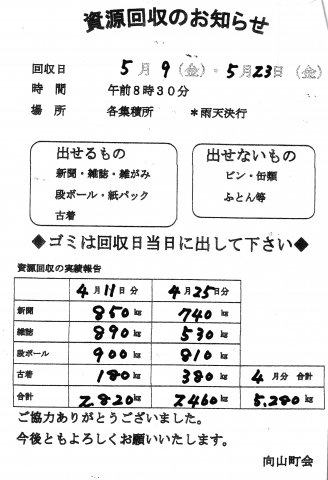 資源回収のお知らせ
回収日 5月9(金)・5月23日(金)
時 間 午前8時30分
場 所 各集積所 *雨天決行
出せるもの
新聞・雑誌・雑がみ
段ボール・紙パック
古着
出せないもの
ビン・缶類
ふとん等
◆ゴミは回収日当日に出して下さい◆
資源回収の実績報告
4月11日分 4月25日分
新聞 850kg 740kg
雑誌 890kg 530kg
段ボール 900kg 810kg
古着 180kg 380kg 4月分 合計
合計 2,820kg 2460kg 5,280kg
ご協力ありがとうございました。
今後ともよろしくお願いいたします。
向山町会